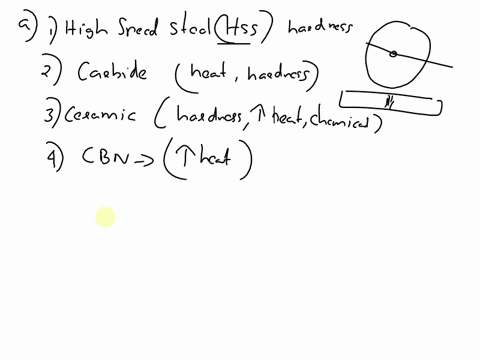 a) 1) High Speed Steel (Hss) hardness
2) Carbide (heat, hardness)
3) Ceramic (hardness, ↑ heat, chemical)
4) CBN → (↑ heat)